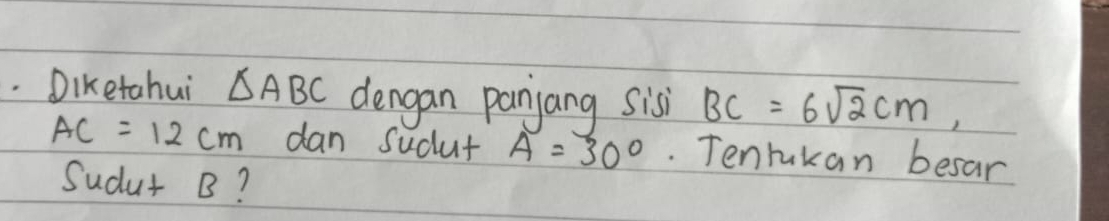 . Diketahui ΔABC dengan panjang sisi BC = 6√2 cm,
AC = 12 cm dan sudut A = 30°. Tentukan besar
Sudut B?